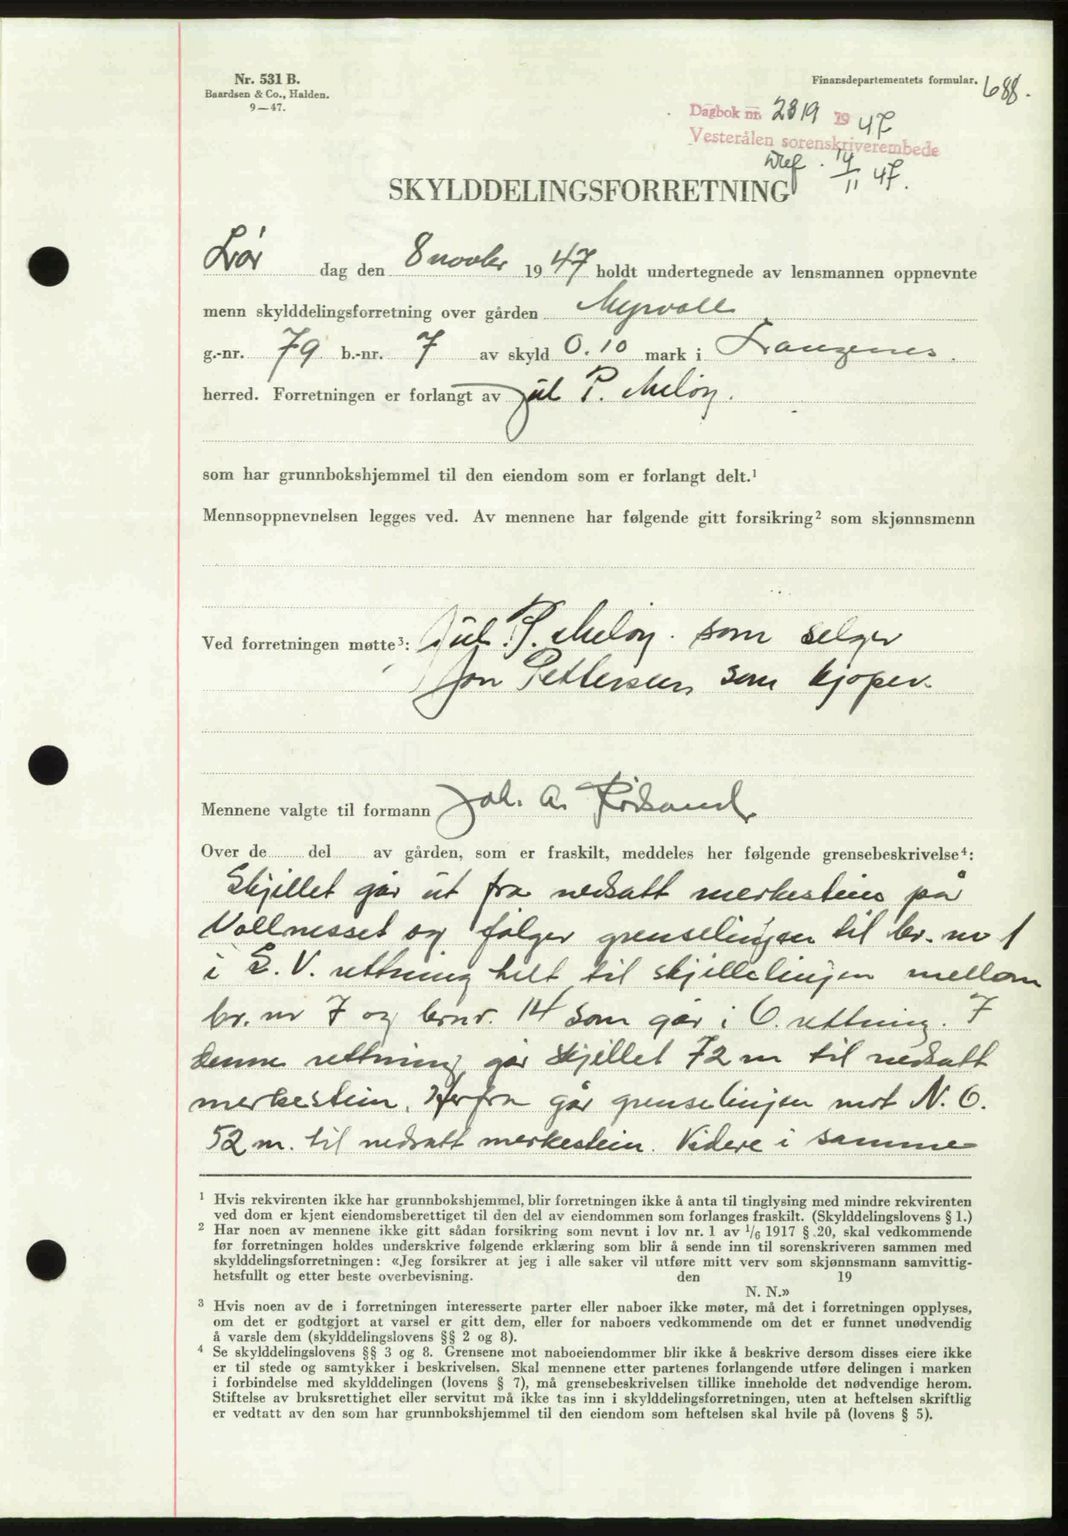 Nr. 531 B.
Baardsen & Co., Halden.
9—47.
Finansdepartementets formular.
688.
Dagbok nr. 2819 19 47
Vesterålen sorenskriverembede
14/11 47.
SKYLDDELINGSFORRETNING
Lør dag den 8 novbr 1947 holdt undertegnede av lensmannen oppnevnte
menn skylddelingsforretning over gården Myrvoll
g.-nr. 79 b.-nr. 7 av skyld 0.10 mark i Langenes.
herred. Forretningen er forlangt av Jul P. Meløy.
som har grunnbokshjemmel til den eiendom som er forlangt delt.¹
Mennsoppnevnelsen legges ved. Av mennene har følgende gitt forsikring² som skjønnsmenn
Ved forretningen møtte³: Jul. P. Meløy. som selger
Jon Pettersen som kjøper.
Mennene valgte til formann Joh. A.
Over de del av gården, som er fraskilt, meddeles her følgende grensebeskrivelse⁴:
Skjillet går ut fra nedsatt merkestein på
Vollnesset og følger grenselinjen til br. nr 1
i S. V. rettning helt til skjillelinjen mellom
br. nr 7 og brnr. 14 som går i O. rettning. I
denne rettning går skjillet 72 m til nedsatt
merkestein. Herfra går grenselinjen mot N. O.
52 m. til nedsatt merkestein. Videre i samme
¹ Hvis rekvirenten ikke har grunnbokshjemmel, blir forretningen ikke å anta til tinglysing med mindre rekvirenten
ved dom er kjent eiendomsberettiget til den del av eiendommen som forlanges fraskilt. (Skylddelingslovens § 1.)
² Har noen av mennene ikke gitt sådan forsikring som nevnt i lov nr. 1 av 1/6 1917 § 20, skal vedkommende
før forretningen holdes underskrive følgende erklæring som blir å sende inn til sorenskriveren sammen med
skylddelingsforretningen: «Jeg forsikrer at jeg i alle saker vil utføre mitt verv som skjønnsmann samvittig-
hetsfullt og etter beste overbevisning. den 19
N. N.»
³ Hvis noen av de i forretningen interesserte parter eller naboer ikke møter, må det i forretningen opplyses,
om det er godtgjort at varsel er gitt dem, eller for naboers vedkommende om det er funnet unødvendig
å varsle dem (skylddelingslovens §§ 2 og 8).
⁴ Se skylddelingslovens §§ 3 og 8. Grensene mot naboeiendommer blir ikke å beskrive dersom disses eiere ikke
er til stede og samtykker i beskrivelsen. Skal mennene etter partenes forlangende utføre delingen i marken
i forbindelse med skylddelingen (lovens § 7), må grensebeskrivelsen tillike inneholde det nødvendige herom.
Stiftelse av bruksrettighet eller servitut må ikke tas inn i skylddelingsforretningen, uten at heftelsen skriftlig
er vedtatt av den som har grunnbokshjemmel til den eiendom som heftelsen skal hvile på (lovens § 5).